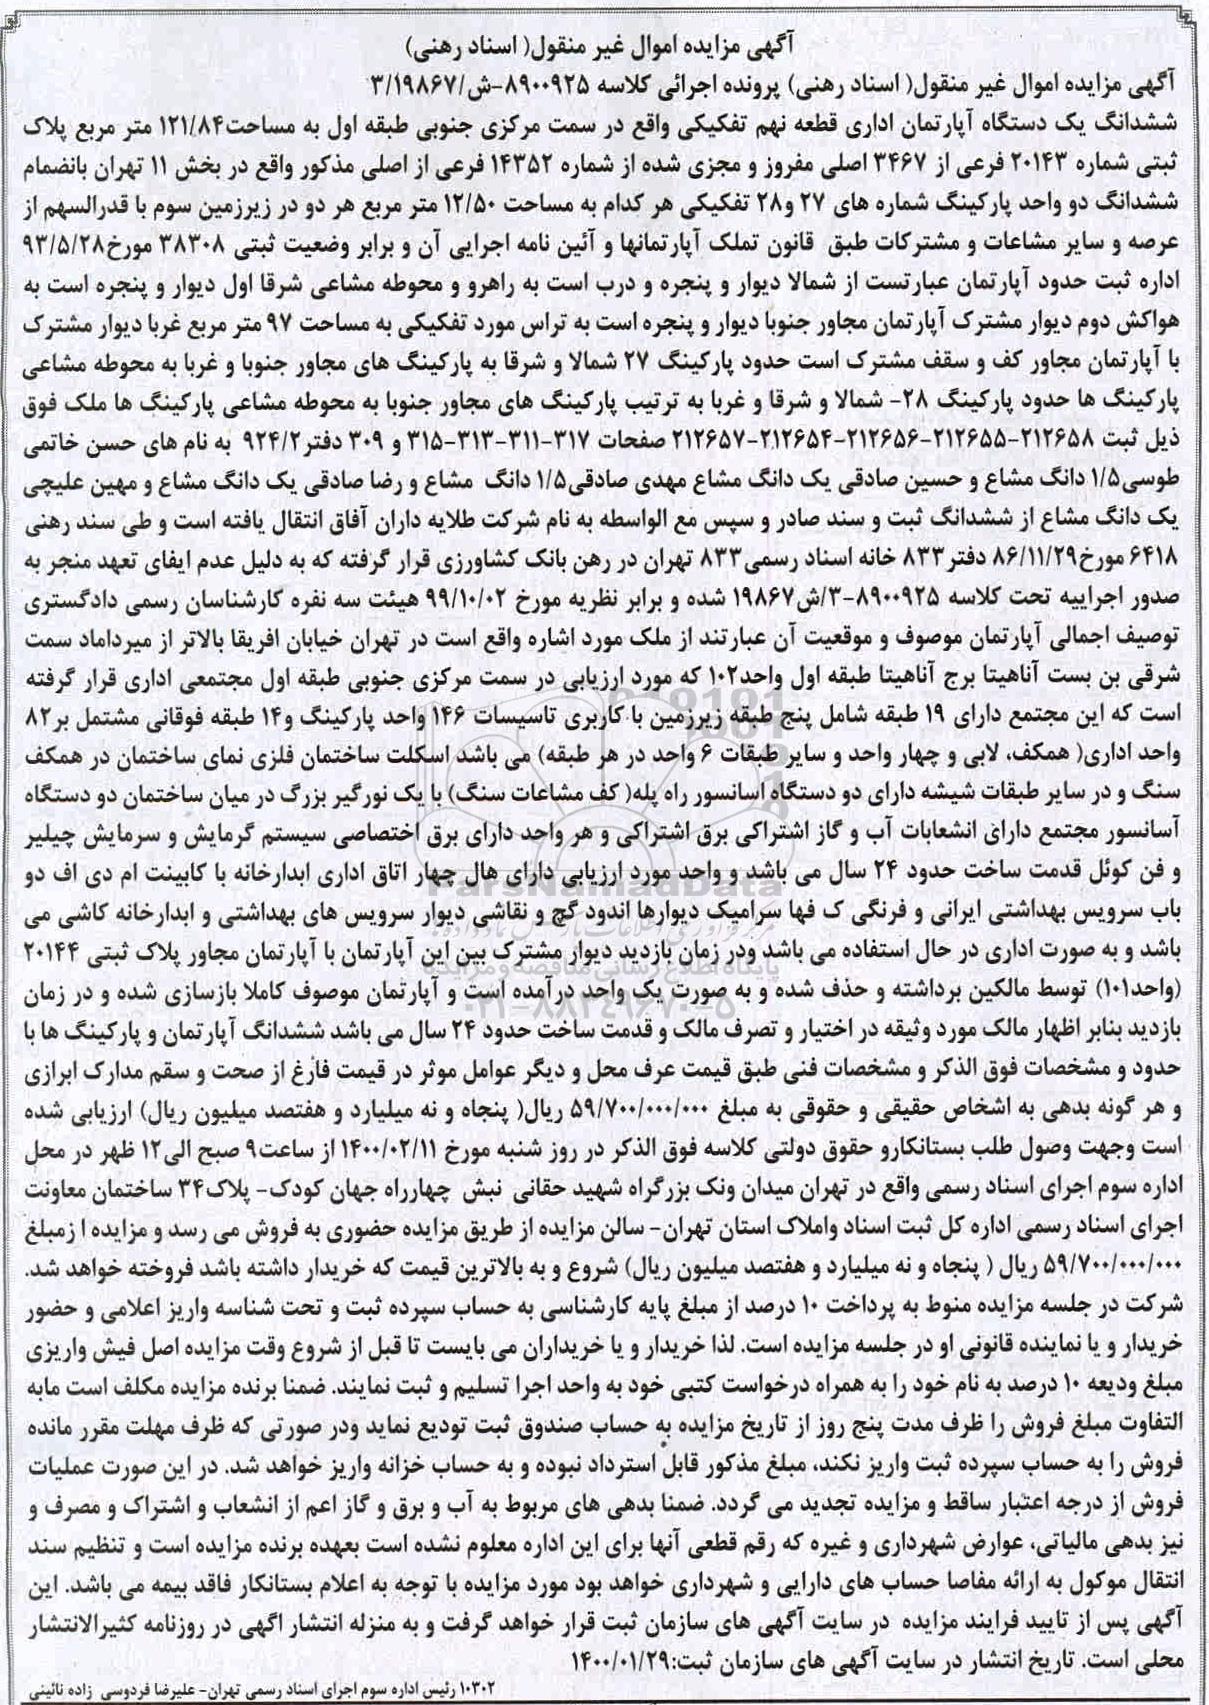 آگهی مزایده اموال غیر منقول( اسناد رهنی)
آگهی مزایده اموال غیر منقول( اسناد رهنی) پرونده اجرائی کلاسه ۸۹۰۰۹۲۵-ش/۳/۱۹۸۶۷
ششدانگ یک دستگاه آپارتمان اداری قطعه نهم تفکیکی واقع در سمت مرکزی جنوبی طبقه اول به مساحت۱۲۱/۸۴ متر مربع پلاک
ثبتی شماره ۲۰۱۴۳ فرعی از ۳۴۶۷ اصلی مفروز و مجزی شده از شماره ۱۴۳۵۲ فرعی از اصلی مذکور واقع در بخش ۱۱ تهران بانضمام
ششدانگ دو واحد پارکینگ شماره های ۲۷ و۲۸ تفکیکی هر کدام به مساحت ۱۲/۵۰ متر مربع هر دو در زیرزمین سوم با قدرالسهم از
عرصه و سایر مشاعات و مشترکات طبق قانون تملک آپارتمانها و آئین نامه اجرایی آن و برابر وضعیت ثبتی ۳۸۳۰۸ مورخ۹۳/۵/۲۸
اداره ثبت حدود آپارتمان عبارتست از شمالا دیوار و پنجره و درب است به راهرو و محوطه مشاعی شرقا اول دیوار و پنجره است به
هواکش دوم دیوار مشترک آپارتمان مجاور جنوبا دیوار و پنجره است به تراس مورد تفکیکی به مساحت ۹۷ متر مربع غربا دیوار مشترک
با آپارتمان مجاور کف و سقف مشترک است حدود پارکینگ ۲۷ شمالا و شرقا به پارکینگ های مجاور جنوبا و غربا به محوطه مشاعی
پارکینگ ها حدود پارکینگ ۲۸- شمالا و شرقا و غربا به ترتیب پارکینگ های مجاور جنوبا به محوطه مشاعی پارکینگ ها ملک فوق
ذیل ثبت ۲۱۲۶۵۸-۲۱۲۶۵۵-۲۱۲۶۵۶-۲۱۲۶۵۴-۲۱۲۶۵۷ صفحات ۳۱۷-۳۱۱-۳۱۳-۳۱۵ و ۳۰۹ دفتر۹۲۴/۲ به نام های حسن خاتمی
طوسی۱/۵ دانگ مشاع و حسین صادقی یک دانگ مشاع مهدی صادقی۱/۵ دانگ مشاع و رضا صادقی یک دانگ مشاع و مهین علیچی
یک دانگ مشاع از ششدانگ ثبت و سند صادر و سپس مع الواسطه به نام شرکت طلایه داران آفاق انتقال یافته است و طی سند رهنی
۶۴۱۸ مورخ۸۶/۱۱/۲۹ دفتر۸۳۳ خانه اسناد رسمی۸۳۳ تهران در رهن بانک کشاورزی قرار گرفته که به دلیل عدم ایفای تعهد منجر به
صدور اجراییه تحت کلاسه ۸۹۰۰۹۲۵-۳/ش۱۹۸۶۷ شده و برابر نظریه مورخ ۹۹/۱۰/۰۲ هیئت سه نفره کارشناسان رسمی دادگستری
توصیف اجمالی آپارتمان موصوف و موقعیت آن عبارتند از ملک مورد اشاره واقع است در تهران خیابان افریقا بالاتر از میرداماد سمت
شرقی بن بست آناهیتا برج آناهیتا طبقه اول واحد۱۰۲ که مورد ارزیابی در سمت مرکزی جنوبی طبقه اول مجتمعی اداری قرار گرفته
است که این مجتمع دارای ۱۹ طبقه شامل پنج طبقه زیرزمین با کاربری تاسیسات ۱۴۶ واحد پارکینگ و۱۴ طبقه فوقانی مشتمل بر۸۲
واحد اداری( همکف، لابی و چهار واحد و سایر طبقات ۶ واحد در هر طبقه) می باشد اسکلت ساختمان فلزی نمای ساختمان در همکف
سنگ و در سایر طبقات شیشه دارای دو دستگاه آسانسور راه پله( کف مشاعات سنگ) با یک نورگیر بزرگ در میان ساختمان دو دستگاه
آسانسور مجتمع دارای انشعابات آب و گاز اشتراکی برق اشتراکی و هر واحد دارای برق اختصاصی سیستم گرمایش و سرمایش چیلیر
و فن کوئل قدمت ساخت حدود ۲۴ سال می باشد و واحد مورد ارزیابی دارای هال چهار اتاق اداری ابدارخانه با کابینت ام دی اف دو
باب سرویس بهداشتی ایرانی و فرنگی ک فها سرامیک دیوارها اندود گچ و نقاشی دیوار سرویس های بهداشتی و ابدارخانه کاشی می
باشد و به صورت اداری در حال استفاده می باشد ودر زمان بازدید دیوار مشترک بین این آپارتمان با آپارتمان مجاور پلاک ثبتی ۲۰۱۴۴
(واحد۱۰۱) توسط مالکین برداشته و حذف شده و به صورت یک واحد درآمده است و آپارتمان موصوف کاملا بازسازی شده و در زمان
بازدید بنابر اظهار مالک مورد وثیقه در اختیار و تصرف مالک و قدمت ساخت حدود ۲۴ سال می باشد ششدانگ آپارتمان و پارکینگ ها با
حدود و مشخصات فوق الذکر و مشخصات فنی طبق قیمت عرف محل و دیگر عوامل موثر در قیمت فارغ از صحت و سقم مدارک ابرازی
و هر گونه بدهی به اشخاص حقیقی و حقوقی به مبلغ ۵۹/۷۰۰/۰۰۰/۰۰۰ ریال( پنجاه و نه میلیارد و هفتصد میلیون ریال) ارزیابی شده
است وجهت وصول طلب بستانکارو حقوق دولتی کلاسه فوق الذکر در روز شنبه مورخ ۱۴۰۰/۰۲/۱۱ از ساعت۹ صبح الی۱۲ ظهر در محل
اداره سوم اجرای اسناد رسمی واقع در تهران میدان ونک بزرگراه شهید حقانی نبش چهارراه جهان کودک- پلاک۳۴ ساختمان معاونت
اجرای اسناد رسمی اداره کل ثبت اسناد واملاک استان تهران- سالن مزایده از طریق مزایده حضوری به فروش می رسد و مزایده ا زمبلغ
۵۹/۷۰۰/۰۰۰/۰۰۰ ریال ( پنجاه و نه میلیارد و هفتصد میلیون ریال) شروع و به بالاترین قیمت که خریدار داشته باشد فروخته خواهد شد.
شرکت در جلسه مزایده منوط به پرداخت ۱۰ درصد از مبلغ پایه کارشناسی به حساب سپرده ثبت و تحت شناسه واریز اعلامی و حضور
خریدار و یا نماینده قانونی او در جلسه مزایده است. لذا خریدار و یا خریداران می بایست تا قبل از شروع وقت مزایده اصل فیش واریزی
مبلغ ودیعه ۱۰ درصد به نام خود را به همراه درخواست کتبی خود به واحد اجرا تسلیم و ثبت نمایند. ضمنا برنده مزایده مکلف است مابه
التفاوت مبلغ فروش را ظرف مدت پنج روز از تاریخ مزایده به حساب صندوق ثبت تودیع نماید ودر صورتی که ظرف مهلت مقرر مانده
فروش را به حساب سپرده ثبت واریز نکند، مبلغ مذکور قابل استرداد نبوده و به حساب خزانه واریز خواهد شد. در این صورت عملیات
فروش از درجه اعتبار ساقط و مزایده تجدید می گردد. ضمنا بدهی های مربوط به آب و برق و گاز اعم از انشعاب و اشتراک و مصرف و
نیز بدهی مالیاتی، عوارض شهرداری و غیره که رقم قطعی آنها برای این اداره معلوم نشده است بعهده برنده مزایده است و تنظیم سند
انتقال موکول به ارائه مفاصا حساب های دارایی و شهرداری خواهد بود مورد مزایده با توجه به اعلام بستانکار فاقد بیمه می باشد. این
آگهی پس از تایید فرایند مزایده در سایت آگهی های سازمان ثبت قرار خواهد گرفت و به منزله انتشار اگهی در روزنامه کثیرالانتشار
محلی است. تاریخ انتشار در سایت آگهی های سازمان ثبت:۱۴۰۰/۰۱/۲۹
۱۰۳۰۲ رئیس اداره سوم اجرای اسناد رسمی تهران- علیرضا فردوسی زاده نائینی
ParsNamadData
پایگاه اطلاع رسانی مناقصه و مزایده
۰۲۱-۸۸۳۴۹۶۷۰-۵